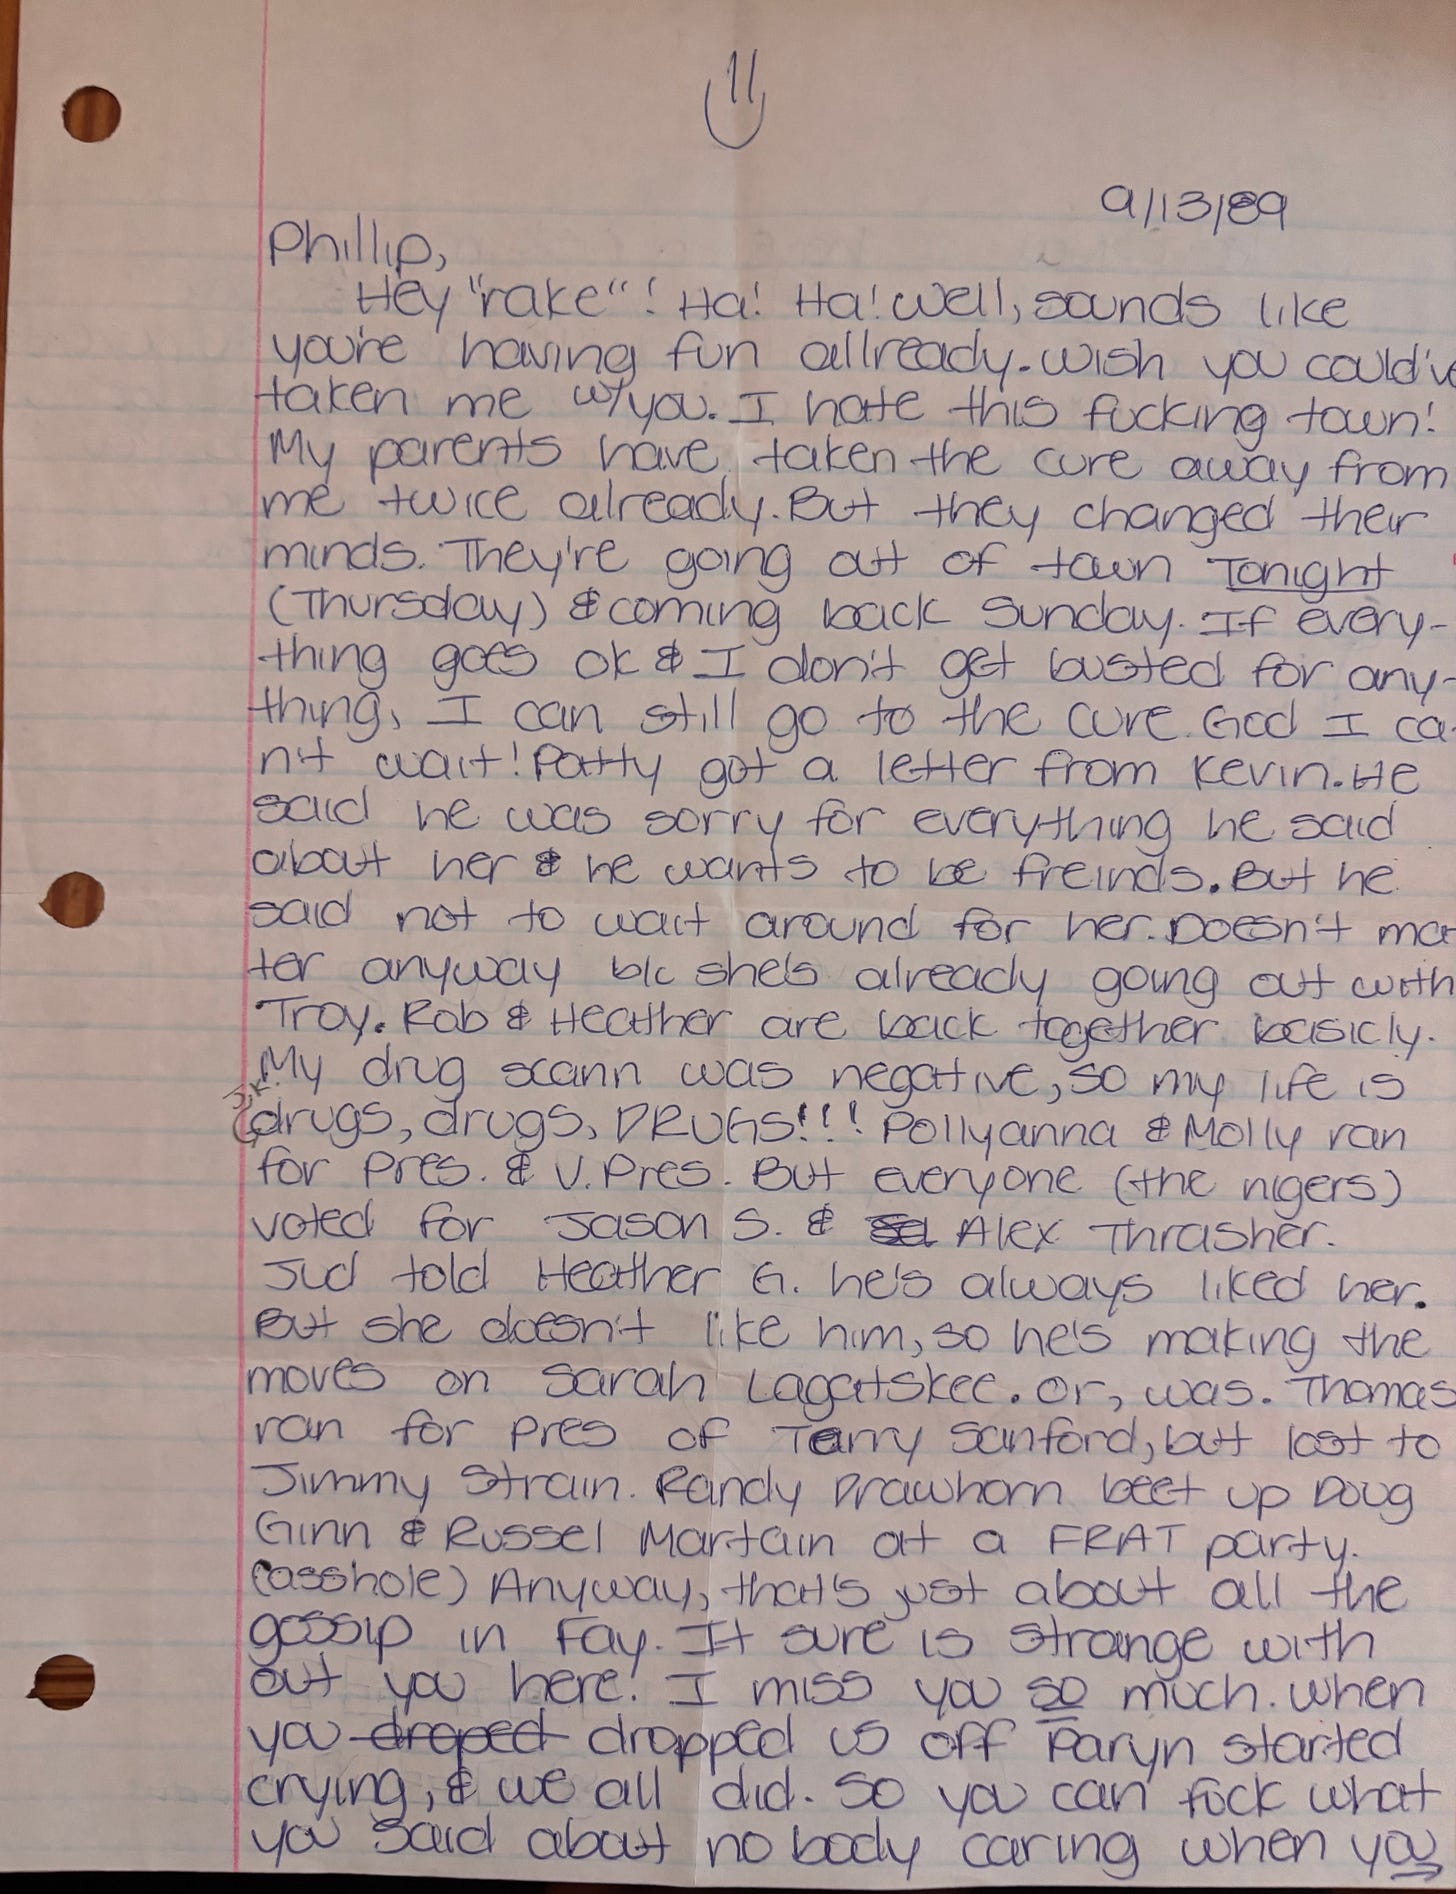 9/13/89
Phillip,
Hey "rake"! Ha! Ha! Well, sounds like
you're having fun allready. Wish you could've
taken me w/you. I hate this fucking town!
My parents have taken the cure away from
me twice already. But they changed their
minds. They're going out of town Tonight
(Thursday) & coming back Sunday. If every-
thing goes ok & I don't get busted for any-
thing, I can still go to the cure. God I ca-
n't wait! Patty got a letter from Kevin. He
said he was sorry for everything he said
about her & he wants to be freinds. But he
said not to wait around for her. Doesn't mat
ter anyway b/c she's already going out with
Troy. Rob & Heather are back together basicly.
My drug scann was negative, so my life is
J.K. (drugs, drugs, DRUGS!!! Pollyanna & Molly ran
for Pres. & V. Pres. But everyone (the nigers)
voted for Jason S. & Alex Thrasher.
Jud told Heather G. he's always liked her.
But she doesn't like him, so he's making the
moves on Sarah Lagatskee. Or, was. Thomas
ran for pres of Terry Sanford, but lost to
Jimmy Strain. Randy Drawhorn beet up Doug
Ginn & Russel Martain at a FRAT party.
(asshole) Anyway, that's just about all the
gossip in Fay. It sure is strange with
out you here! I miss you so much. When
you droped dropped us off Paryn started
crying, & we all did. So you can fuck what
you said about no body caring when you